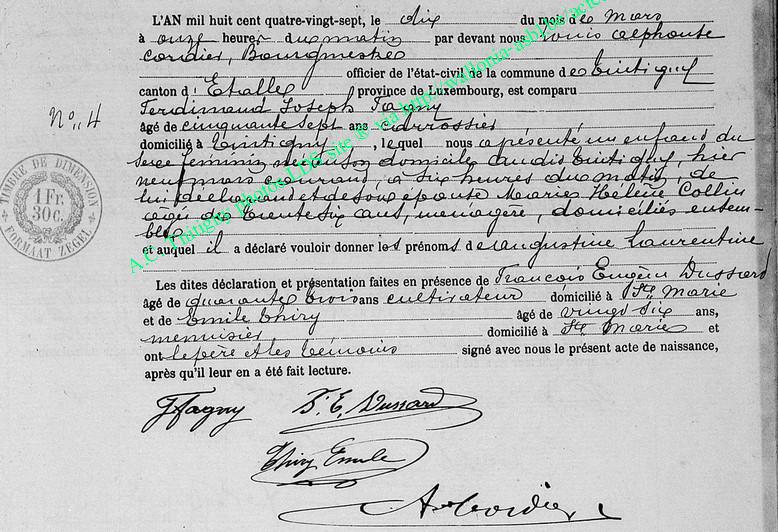 L'AN mil huit cent quatre-vingt-sept, le dix du mois de Mars
à onze heures du matin par devant nous Louis Alphonse
Cordier, Bourgmestre
officier de l'état-civil de la commune de Tintigny
canton d'Etalle province de Luxembourg, est comparu
Ferdinand Joseph Fagny
âgé de cinquante sept ans carrossier
N° 4
domicilié à Tintigny, lequel nous a présenté un enfant du
sexe féminin né en son domicile audit Tintigny, hier
neuf mars courant, à six heures du matin, de
lui déclarant et de son épouse Marie Hélène Collin
âgée de trente six ans, ménagère, domiciliés ensem-
ble
et auquel il a déclaré vouloir donner les prénoms de Augustine Laurentine
Les dites déclaration et présentation faites en présence de François Eugène Dussard
âgé de quarante trois ans cultivateur domicilié à Ste Marie
et de Emile Thiry âgé de vingt six ans,
menuisier domicilié à Ste Marie et
ont le père et les témoins signé avec nous le présent acte de naissance,
après qu'il leur en a été fait lecture.
JFagny F. E. Dussard
Thiry Emile
A Cordier
TIMBRE DE DIMENSION
1 Fr.
30 c.
FORMAAT ZEGEL